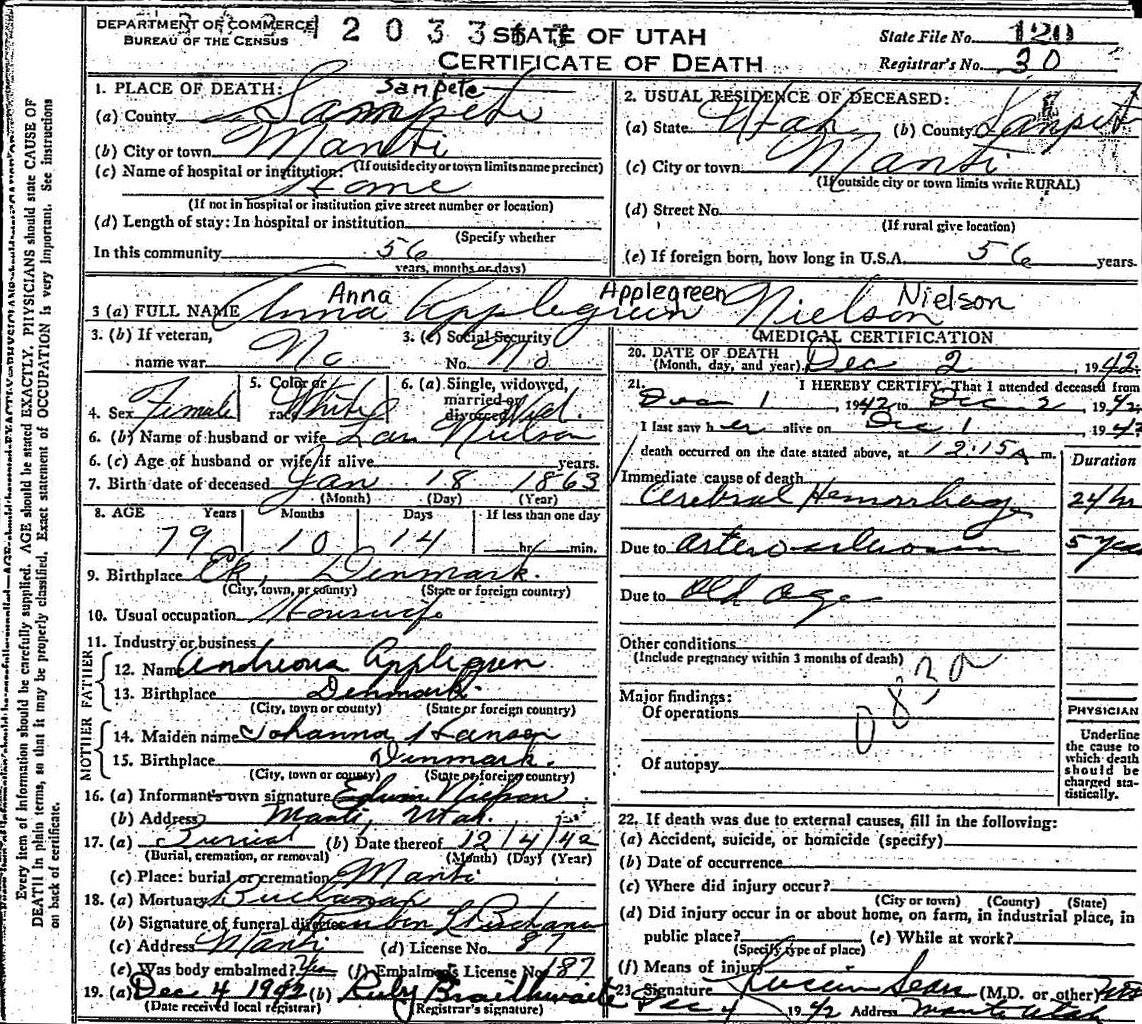 DEPARTMENT OF COMMERCE
BUREAU OF THE CENSUS
STATE OF UTAH
CERTIFICATE OF DEATH
State File No. 120
Registrar's No. 30
1. PLACE OF DEATH: Sanpete
(a) County Sanpete
(b) City or town Manti
(If outside city or town limits name precinct)
(c) Name of hospital or institution: Home
(If not in hospital or institution give street number or location)
(d) Length of stay: In hospital or institution
(Specify whether
In this community 56
years, months or days)
2. USUAL RESIDENCE OF DECEASED:
(a) State Utah (b) County Sanpete
(c) City or town Manti
(If outside city or town limits write RURAL)
(d) Street No.
(If rural give location)
(e) If foreign born, how long in U.S.A. 56 years.
Anna Applegreen Nielson
3 (a) FULL NAME Anna Applegreen Nielson
3. (b) If veteran,
name war No
3. (c) Social Security
No. No
4. Sex Female
5. Color or
race White
6. (a) Single, widowed,
married or
divorced Wid.
6. (b) Name of husband or wife Lars Nielson
6. (c) Age of husband or wife if alive years.
7. Birth date of deceased Jan 18 1863
(Month) (Day) (Year)
8. AGE Years Months Days If less than one day
79 10 14 hr. min.
9. Birthplace Denmark.
(City, town, or county) (State or foreign country)
10. Usual occupation Housewife
11. Industry or business
FATHER
12. Name Applegren
13. Birthplace Denmark.
(City, town or county) (State or foreign country)
MOTHER
14. Maiden name Johanna Hansen
15. Birthplace Denmark.
(City, town or county) (State or foreign country)
16. (a) Informant's own signature Edwin Nielson
(b) Address Manti, Utah.
17. (a) Burial (b) Date thereof 12/4/42
(Burial, cremation, or removal) (Month) (Day) (Year)
(c) Place: burial or cremation Manti
18. (a) Mortuary Buchanan
(b) Signature of funeral director Reuben L Buchanan
(c) Address Manti (d) License No. 87
(e) Was body embalmed? Yes (f) Embalmer's License No 187
19. (a) Dec 4 1942 (b) Ruby Braithwaite
(Date received local registrar) (Registrar's signature)
MEDICAL CERTIFICATION
20. DATE OF DEATH
(Month, day, and year) Dec 2, 1942.
21. I HEREBY CERTIFY, That I attended deceased from
Dec 1, 1942 to Dec 2 1942
I last saw her alive on Dec 1 1942
death occurred on the date stated above, at 12:15 A m.
Duration
Immediate cause of death
Cerebral Hemorrhage 24 hr
Due to 5 year
Due to Old age
Other conditions
(Include pregnancy within 3 months of death)
083a
Major findings:
Of operations
Of autopsy
PHYSICIAN
Underline
the cause to
which death
should be
charged sta-
tistically.
22. If death was due to external causes, fill in the following:
(a) Accident, suicide, or homicide (specify)
(b) Date of occurrence
(c) Where did injury occur?
(City or town) (County) (State)
(d) Did injury occur in or about home, on farm, in industrial place, in
public place? (e) While at work?
(Specify type of place)
(f) Means of injury
23. Signature Lucien Sears (M.D. or other) MD
Dec 4 1942 Address Manti Utah
Every item of information should be carefully supplied. AGE should be stated EXACTLY. PHYSICIANS should state CAUSE OF
DEATH in plain terms, so that it may be properly classified. Exact statement of OCCUPATION is very important. See instructions
on back of certificate.